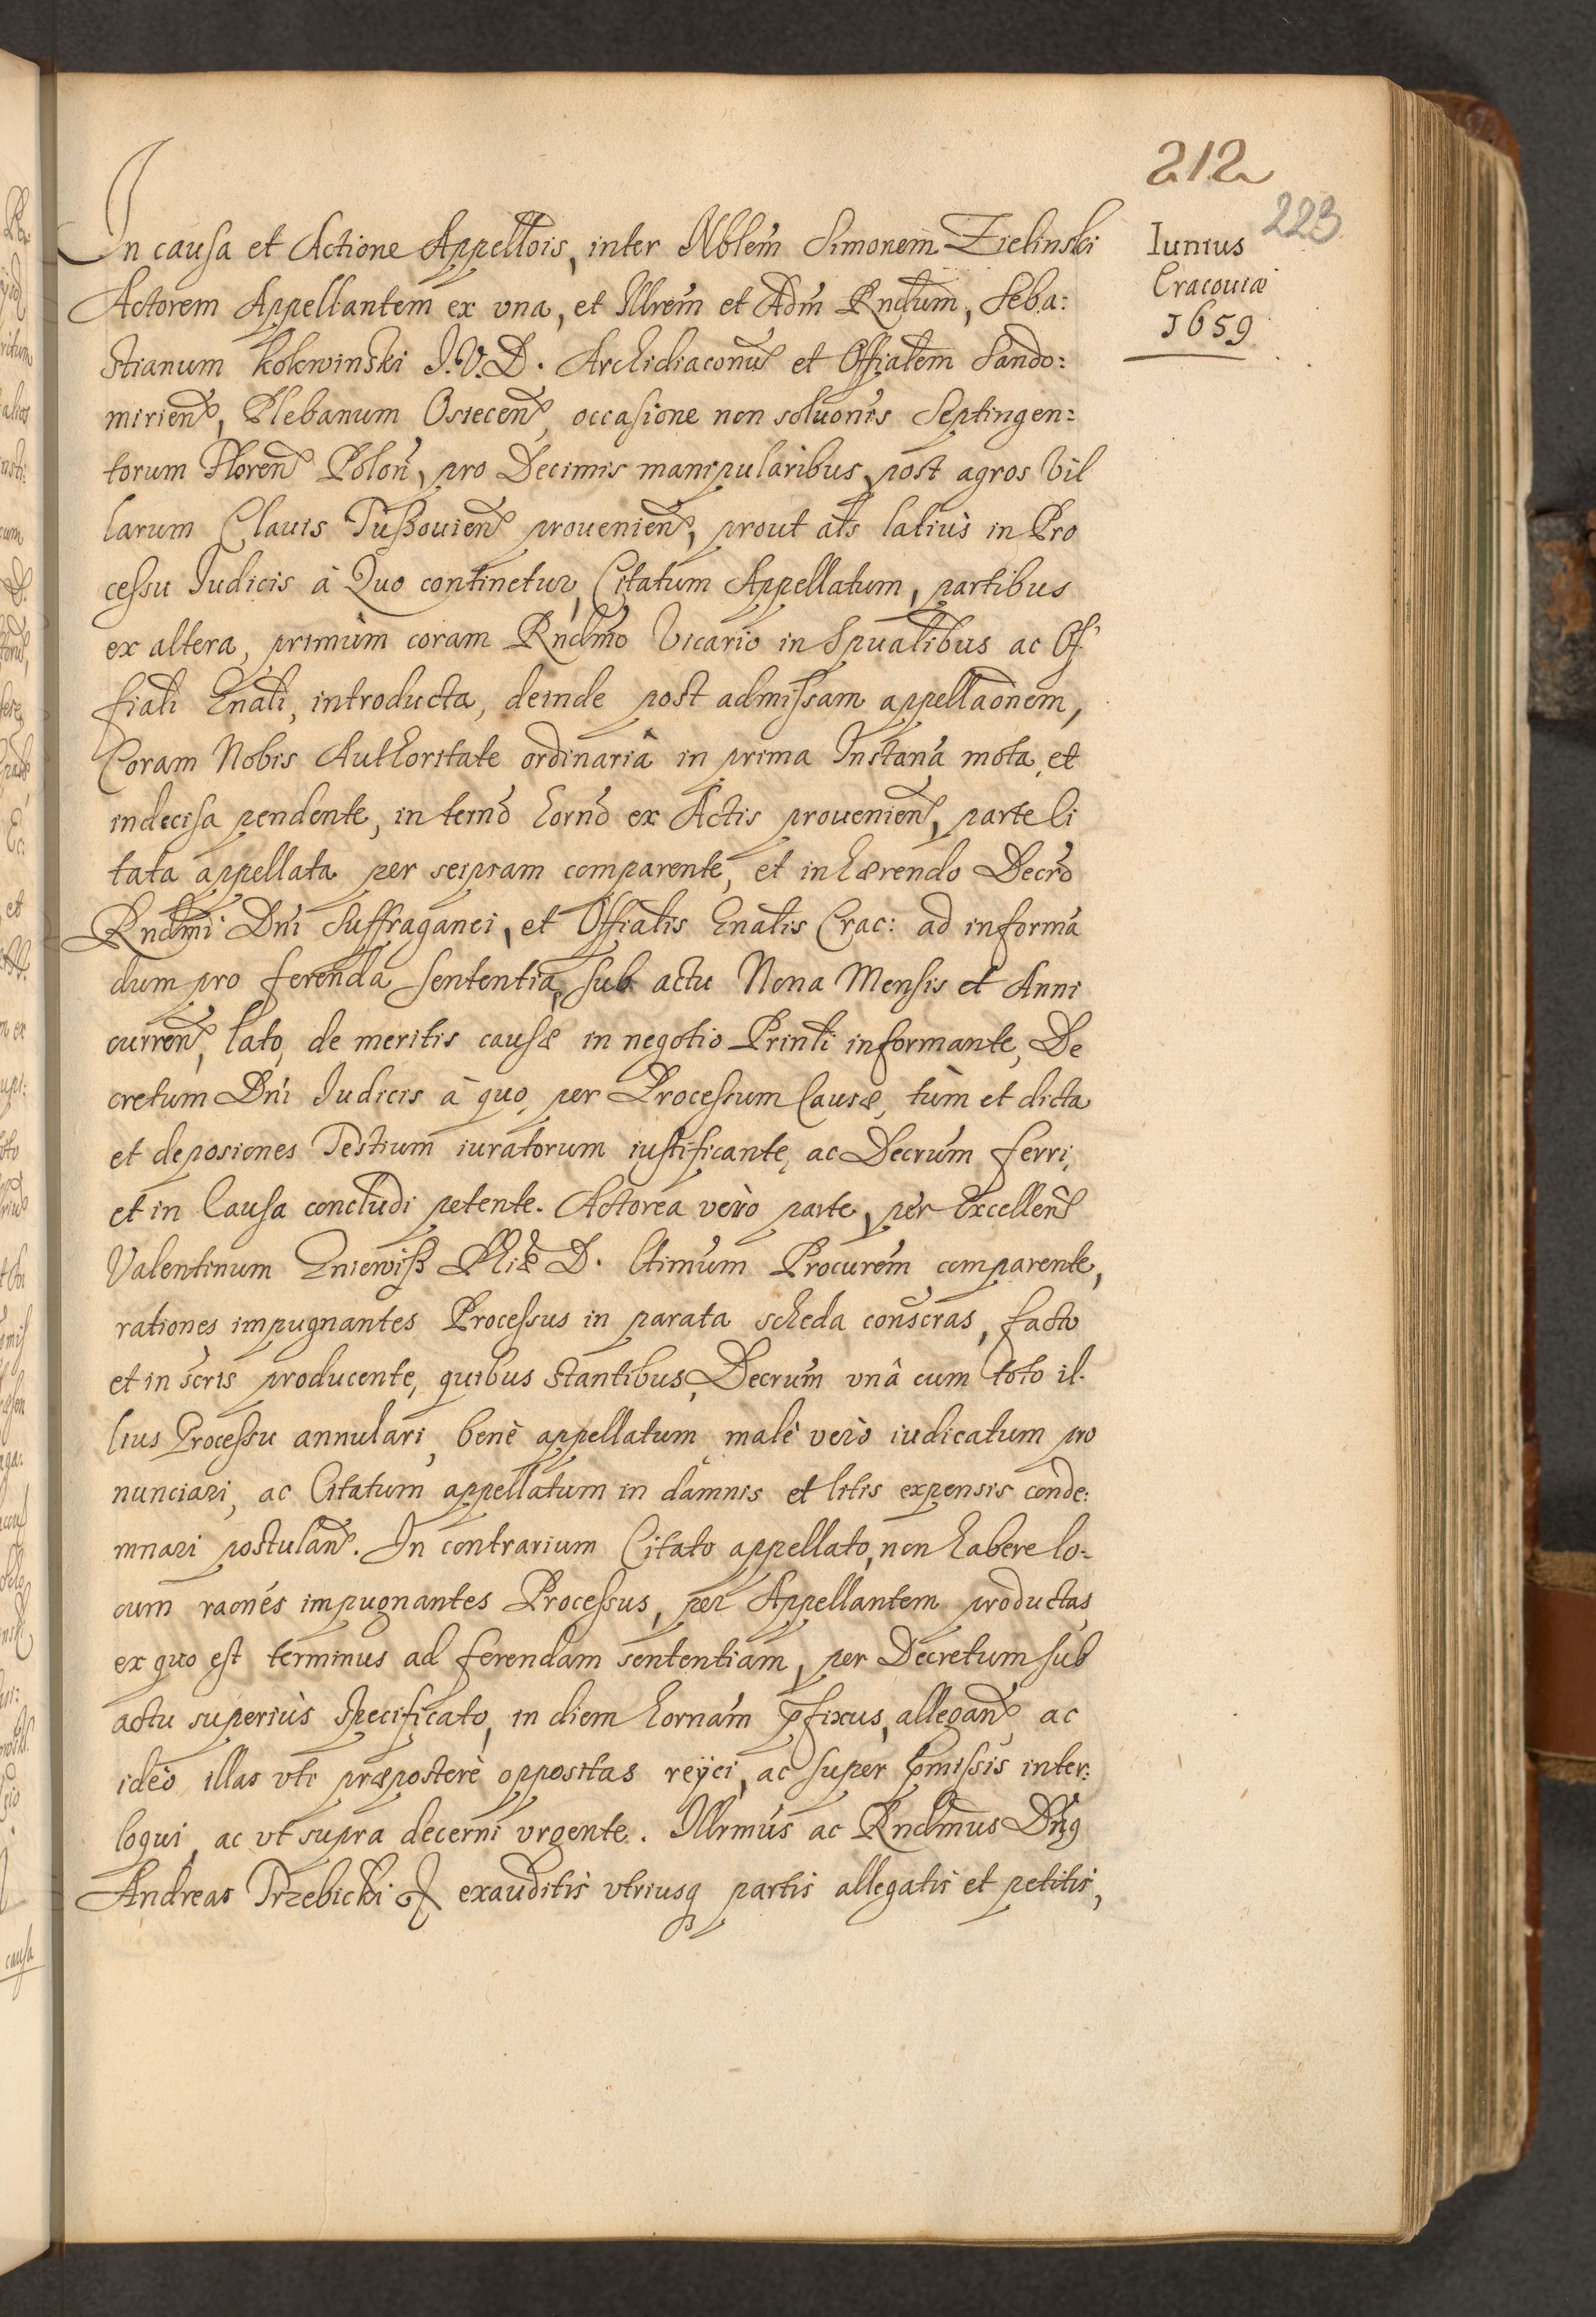 212
223
Iunius
Cracouiæ
1659
In causa et Actione Appellōis, inter Nblem̄ Simonem Zielinski
Actorem Appellantem ex vna, et Illrem̄ et Adm̄ Rndum̄, Seba:
stianum Kokwinski I.V.D. Archidiaconū et Offialem̄ Sando:
mirien̄, Plebanum Osiecen̄, occasione non soluōnis Septingen=
torum Floren̄ Polon̄, pro Decimis manipularibus, post agros Vil
larum Clauis Tußouien̄ prouenien̄, prout al̄s latiùs in Pro
cessu Iudicis à Quo continetur, Citatum Appellatum, partibus
ex altera, primùm coram Rndm̄o Vicario in Spualibus ac Of
fiali Gn̄ali, introducta, deinde post admissam appellaōnem,
Coram Nobis Authoritate ordinariâ in prima Instan̄a mota, et
indecisa pendente, in tern̄o horn̄o ex Actis prouenien̄, parte Ci
tata appellata per seipsam comparente, et inhærendo Decr̄o
Rndm̄i Dn̄i Suffraganei, et Offialis Gn̄alis Crac: ad informā
dum pro ferenda sententia, sub actu Nona Mensis et Anni
curren̄, lato, de meritis causæ in negotio Prin̄li informante, De
cretum Dn̄i Iudicis à quo, per Processum Causæ, tùm et dicta
et deposiones Testium iuratorum iustificante, ac Decrum̄ ferri,
et in Causa concludi petente. Actorea verò parte, per Excellen̄
Valentinum Gniewiß Phiæ D. Ltimum̄ Procurem̄ comparente,
rationes impugnantes Processus in parata scheda conscr̄as, facto
et in scr̄is producente, quibus stantibus, Decrum̄ vnâ cum toto il-
lius Processu annulari, benè appellatum, malè verò iudicatum pro
nunciari, ac Citatum appellatum in damnis et litis expensis conde:
mnari postulan̄. In contrarium Citato appellato, non habere lo-
cum raōnes impugnantes Processus, per Appellantem productas,
ex quo est terminus ad ferendam sententiam, per Decretum sub
actu superiùs specificato, in diem hornam̄ p̄fixus, allegan̄ ac
ideò illas vti præposterè oppositas reÿci, ac super p̄missis inter:
loqui, ac vt supra decerni vrgente. Illrm̄us ac Rndm̄us Dn̄9
Andreas Trzebicki exauditis vtriusq̢ partis allegatis et petitis,